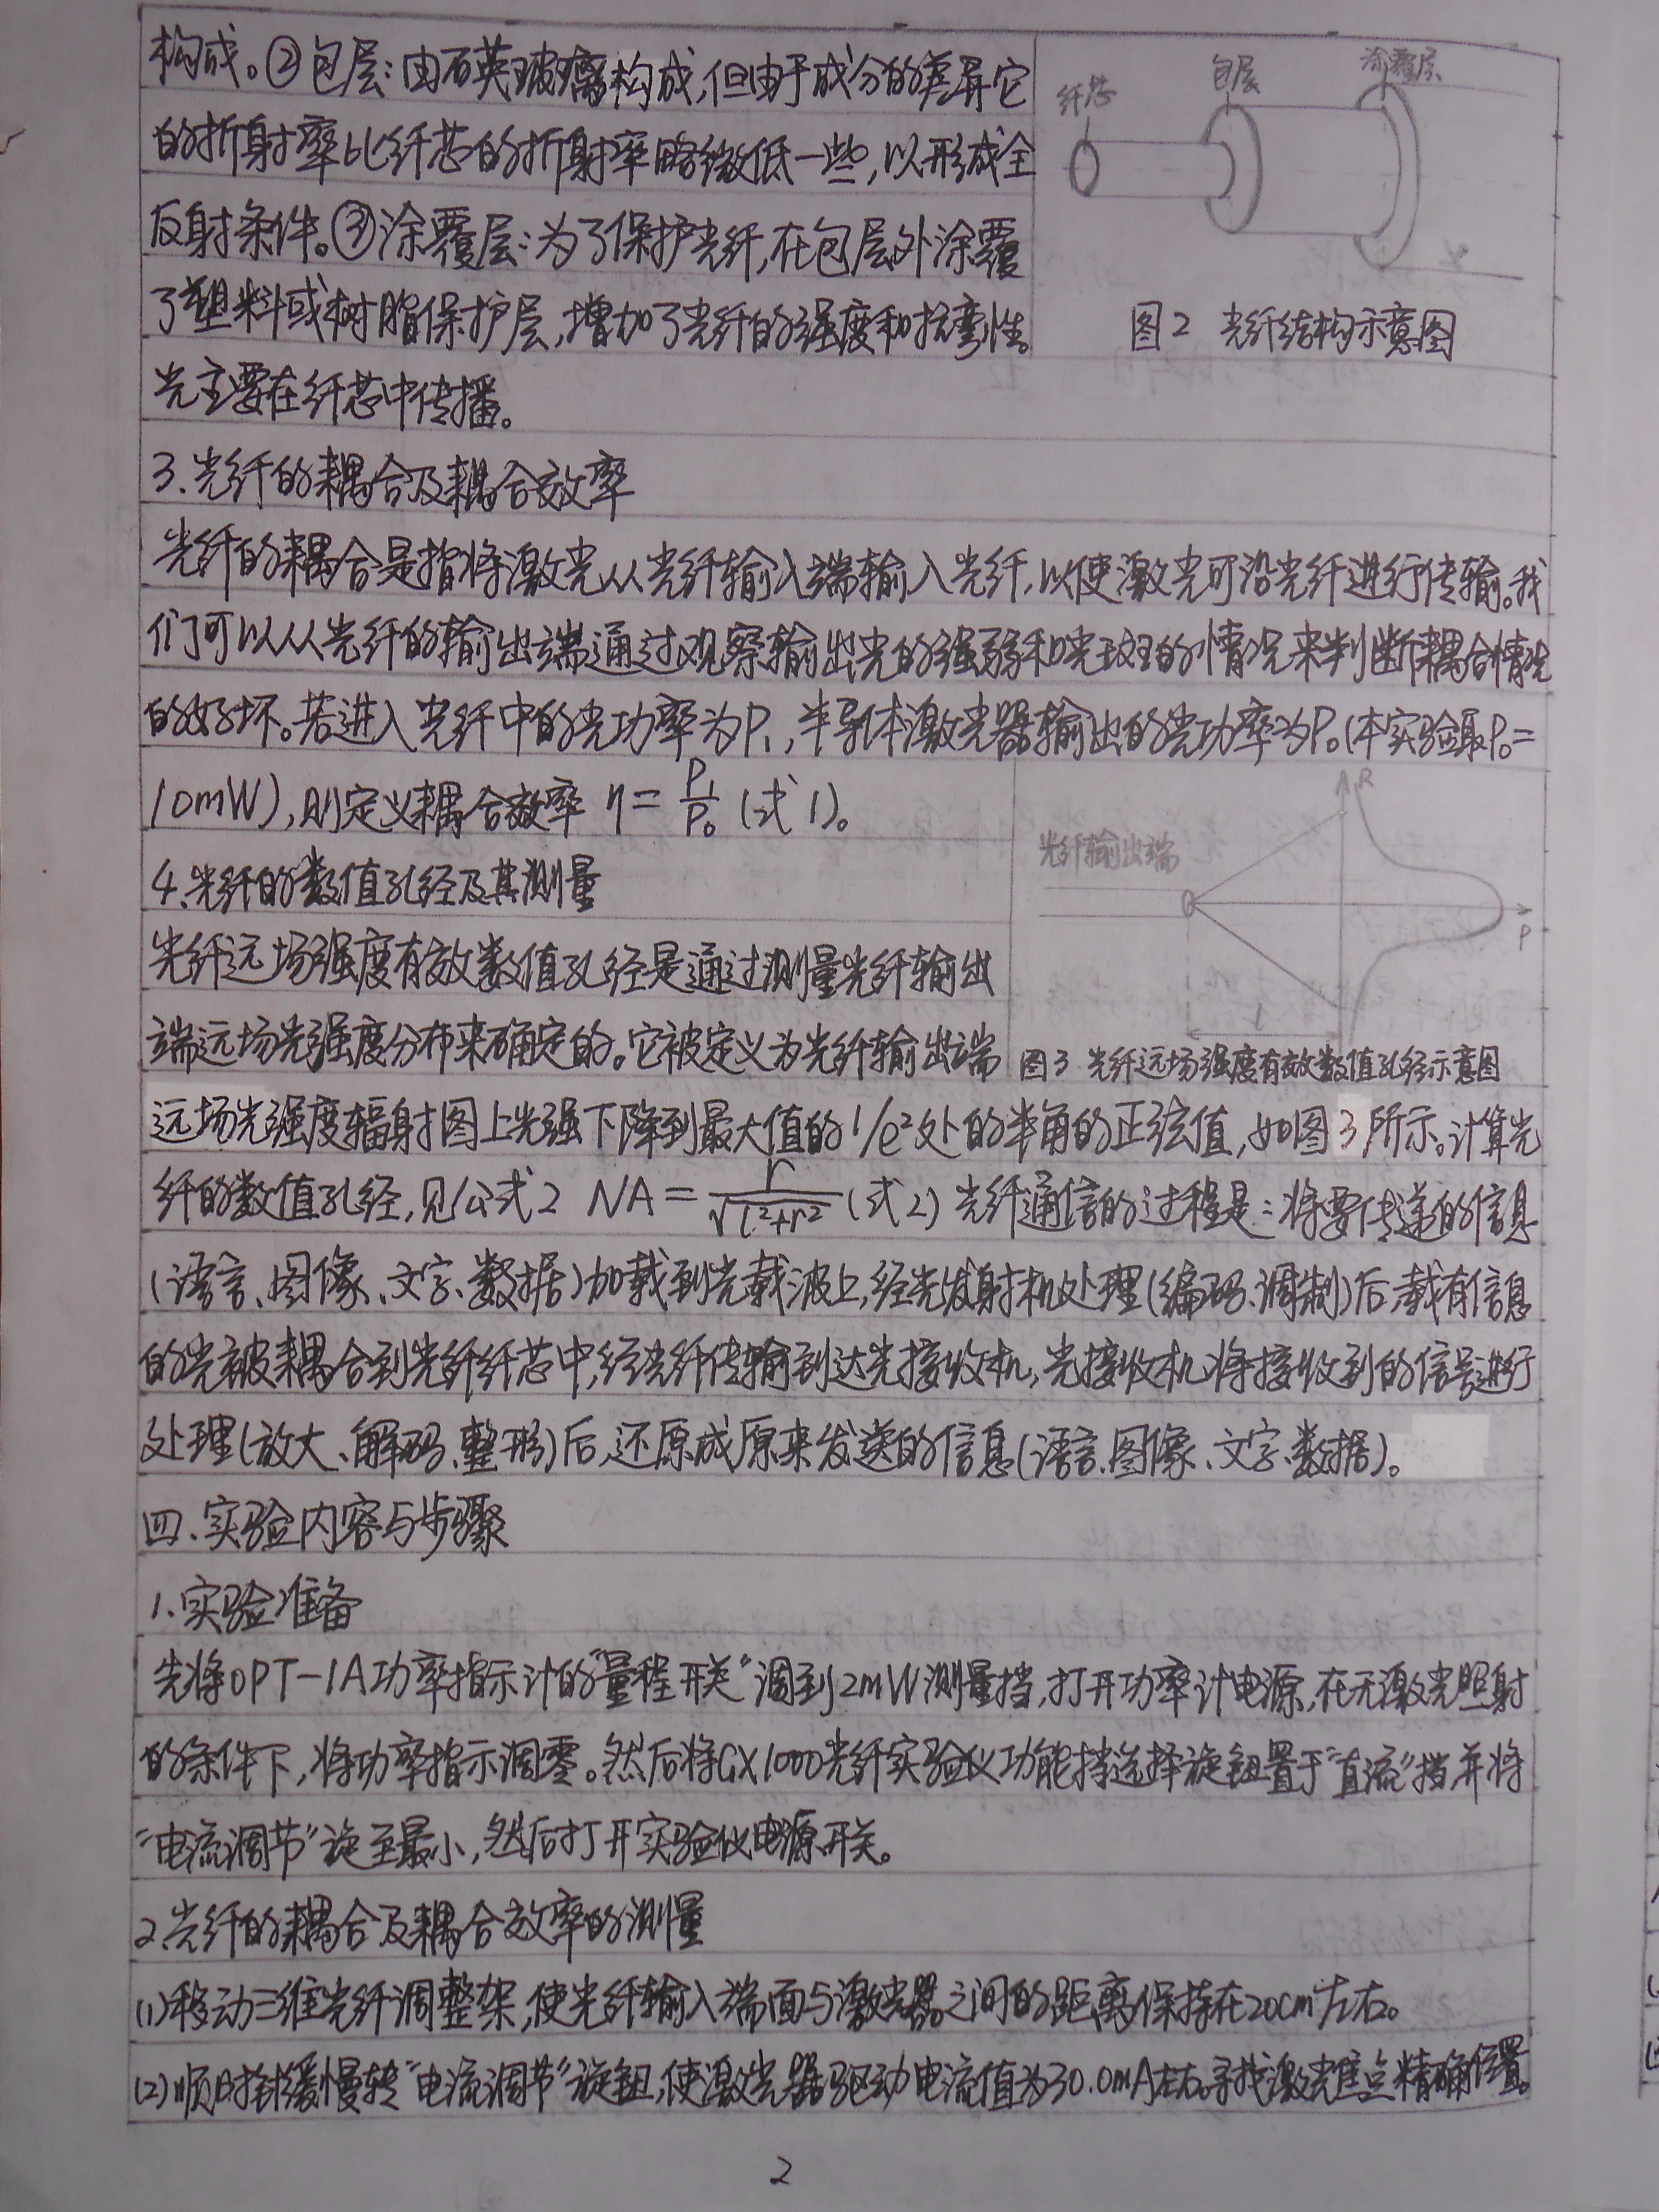 构成。②包层：由石英玻璃构成，但由于成分的差异它
的折射率比纤芯的折射率略微低一些，以形成全
反射条件。③涂覆层：为了保护光纤，在包层外涂覆
了塑料或树脂保护层，增加了光纤的强度和抗弯性。
光主要在纤芯中传播。
纤芯
包层
涂覆层
图2 光纤结构示意图
3.光纤的耦合及耦合效率
光纤的耦合是指将激光从光纤输入端输入光纤，以使激光可沿光纤进行传输。我
们可以从光纤的输出端通过观察输出光的强弱和光斑的情况来判断耦合情况
的好坏。若进入光纤中的光功率为P₁，半导体激光器输出的光功率为P₀(本实验取P₀=
10mW)，则定义耦合效率 η=P₁/P₀ (式1)。
4.光纤的数值孔径及其测量
光纤远场强度有效数值孔径是通过测量光纤输出
端远场光强度分布来确定的。它被定义为光纤输出端
光纤输出端
R
P
l
图3 光纤远场强度有效数值孔径示意图
远场光强度辐射图上光强下降到最大值的1/e²处的半角的正弦值，如图3所示。计算光
纤的数值孔径，见公式2 NA=r/√(l²+r²) (式2) 光纤通信的过程是：将要传递的信息
(语言、图像、文字、数据)加载到光载波上，经光发射机处理(编码、调制)后，载有信息
的光被耦合到光纤纤芯中，经光纤传输到达光接收机，光接收机将接收到的信号进行
处理(放大、解码、整形)后，还原成原来发送的信息(语言、图像、文字、数据)。
四.实验内容与步骤
1.实验准备
先将OPT-1A功率指示计的“量程开关”调到2mW测量挡，打开功率计电源，在无激光照射
的条件下，将功率指示调零。然后将GX1000光纤实验仪功能挡选择旋钮置于“直流”挡，并将
“电流调节”旋至最小，然后打开实验仪电源开关。
2.光纤的耦合及耦合效率的测量
(1)移动三维光纤调整架，使光纤输入端面与激光器之间的距离保持在20cm左右。
(2)顺时针缓慢转“电流调节”旋钮，使激光器驱动电流值为30.0mA左右。寻找激光焦点精确位置。
2